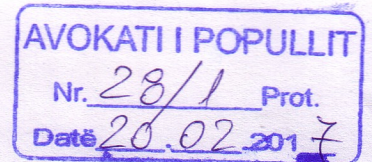 AVOKATI I POPULLIT
Nr. 28/1 Prot.
Datë 20.02.2017